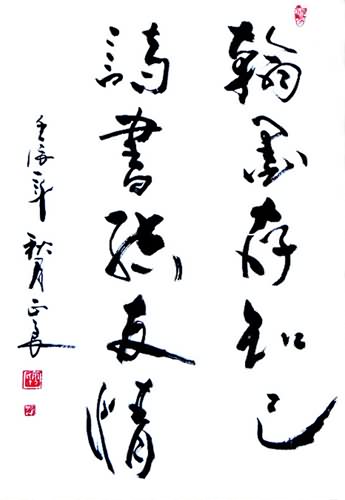 翰墨存知己
詩書結友情
壬辰年 秋月 正良